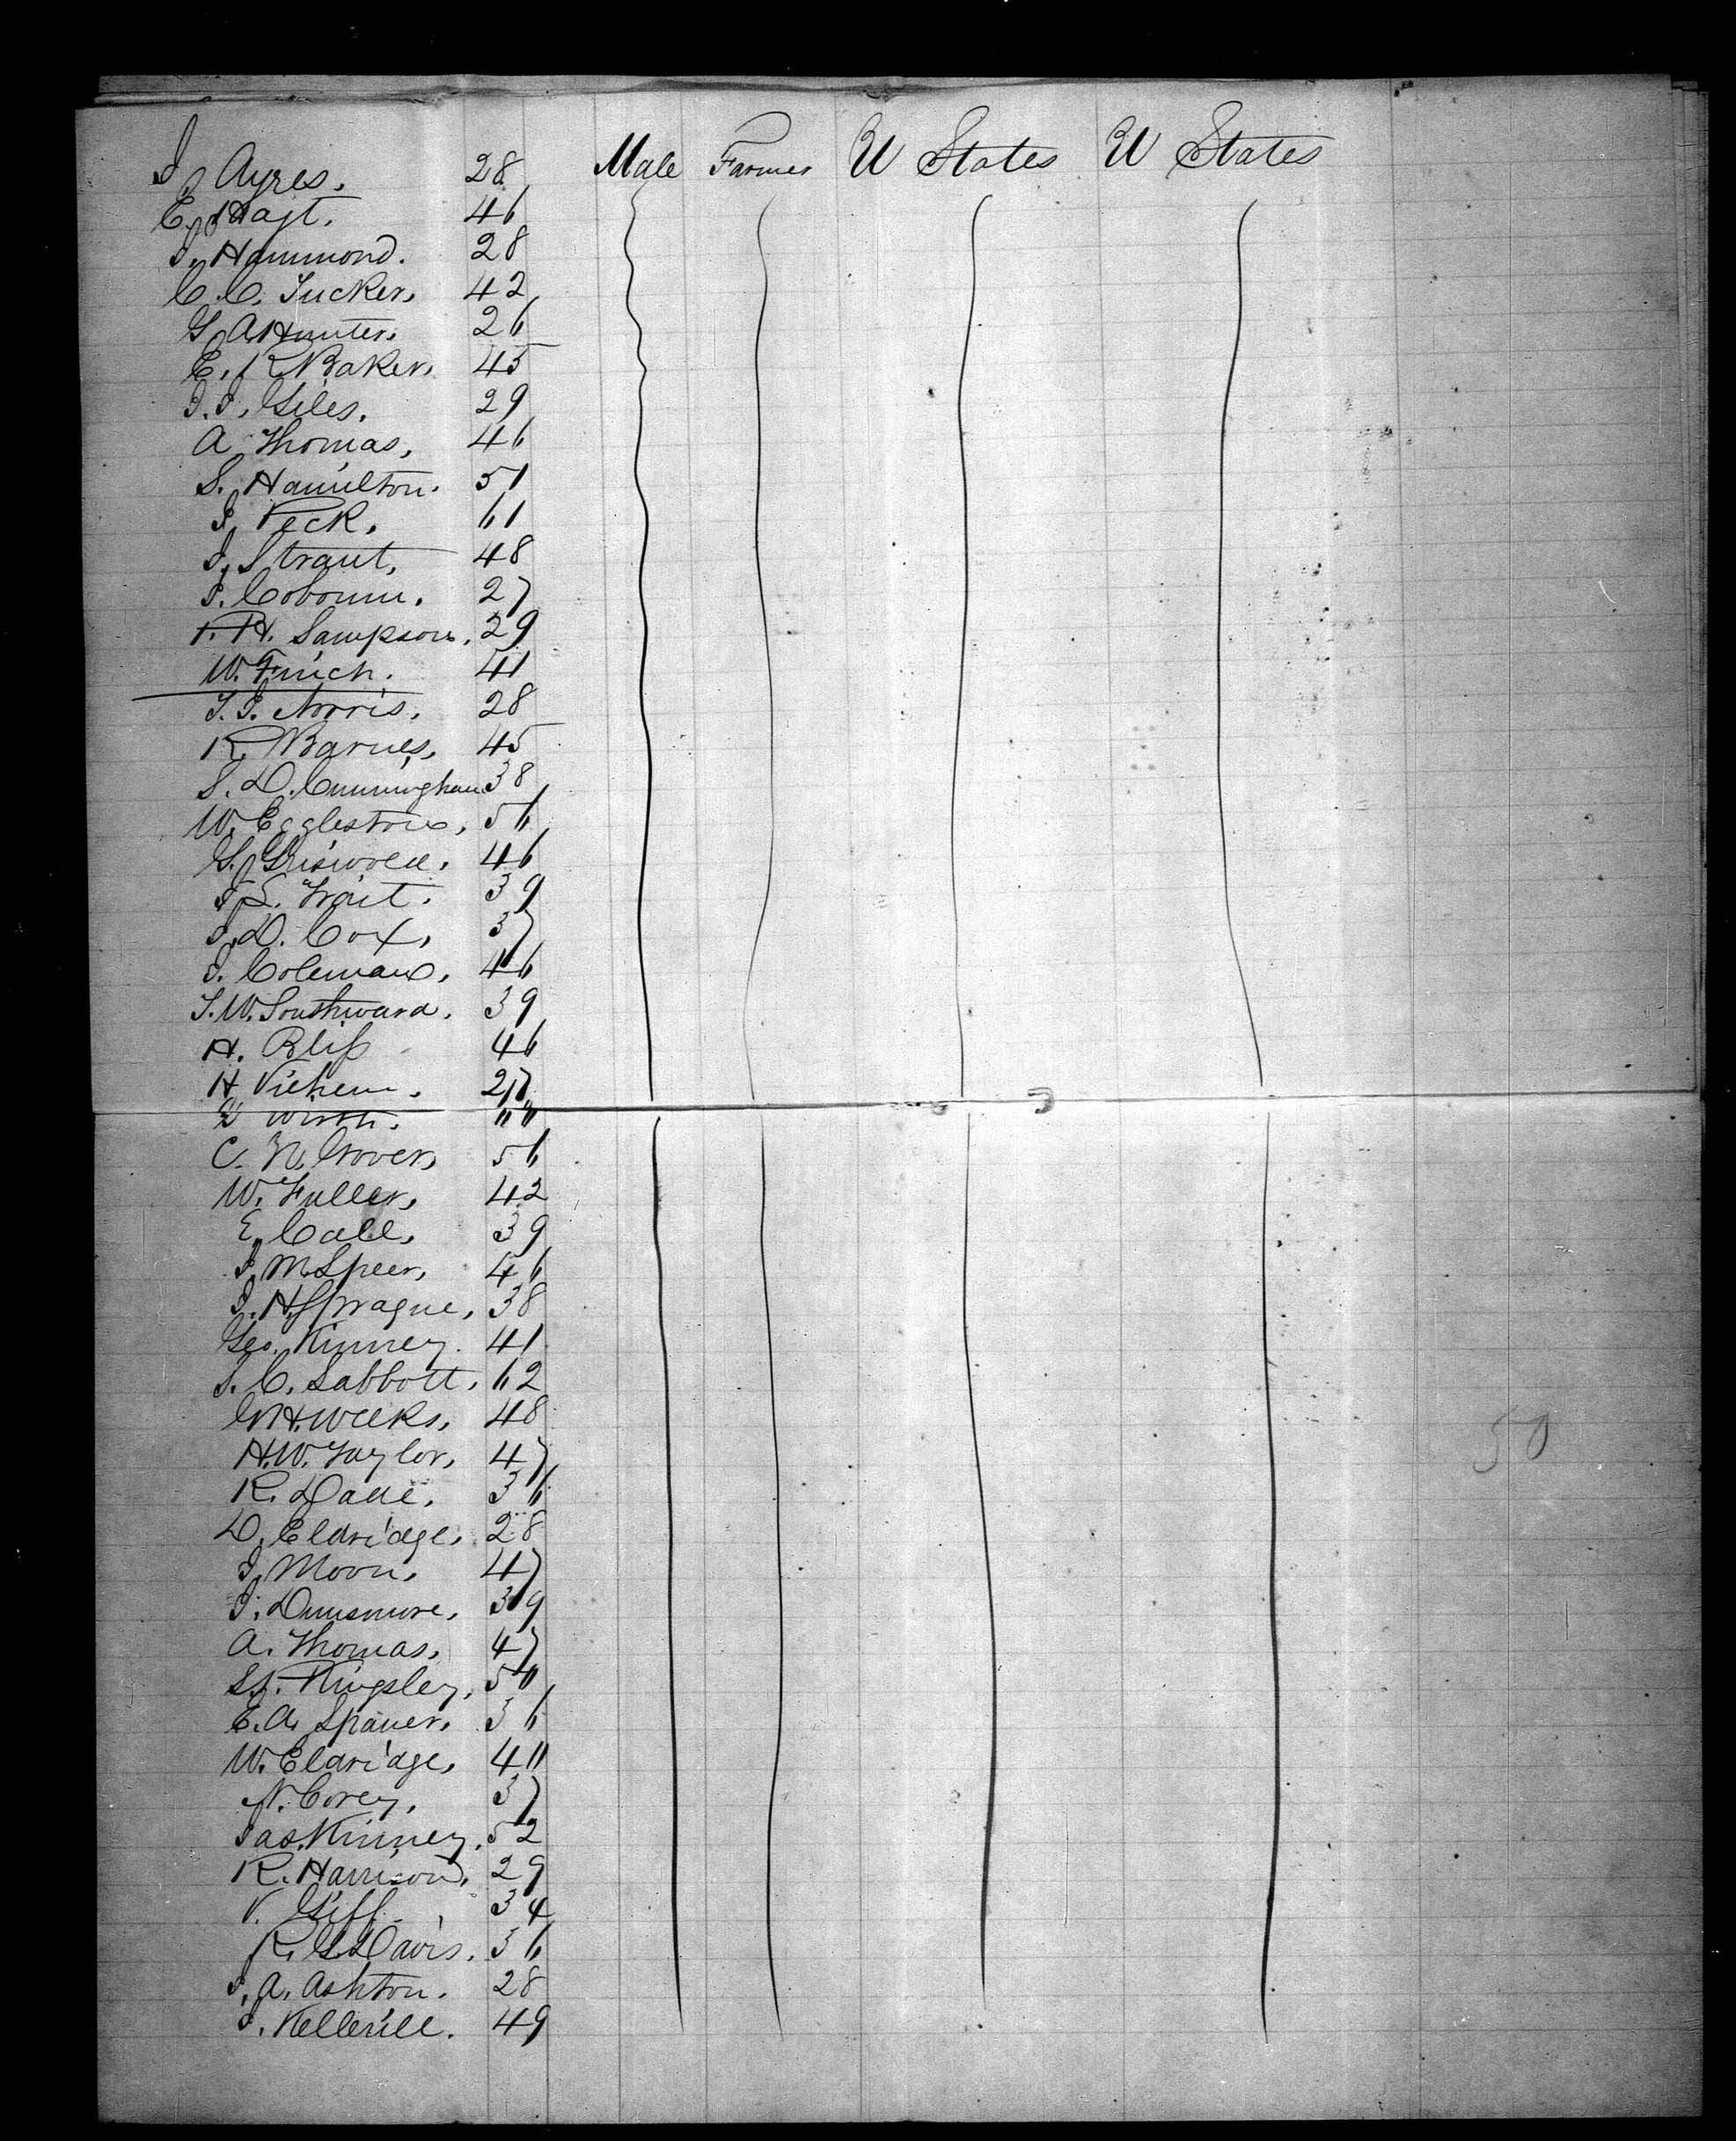 J. Ayres. 28 Male Farmer U States U States
E. Hayt. 46
J. Hammond. 28
C. C. Tucker, 42
G. A. Hunter. 26
E. R. Baker, 45
J. J. Giles. 29
A Thomas, 46
S. Hamilton. 51
J. Peck. 61
J. Straut, 48
J. Cobourn. 27
H. Sampson, 29
W. Finch. 41
T. J. Norris, 28
R. Barnes, 45
S. D. Cunningham 38
W. Eggleston, 56
G. Griswold. 46
J. L. Trait. 39
J. D. Cox, 37
J. Coleman, 46
T. W. Southward. 39
H. Bliss 46
H. 27
Wirth.
C. N. Grover, 56
W. Fuller, 42
E. Call, 39
J. M. Speer, 46
J. H. Sprague, 38
Geo. Kinney. 41
J. C. Sabbott, 62
H. Weeks, 48
H. W. Taylor, 47
R. Dalle. 36
D. Eldridge, 28
J. Moon, 47
J. Dunsmore, 39
A. Thomas, 47
Kingsley, 50
E. A. Spauer. 36
W. Eldridge, 40
N. Corey, 37
Jas. Kinney. 52
R. Harrison, 29
V. Giff. 34
R. G. Davis. 36
J. A. Ashton. 28
J. Kellerill. 49
50